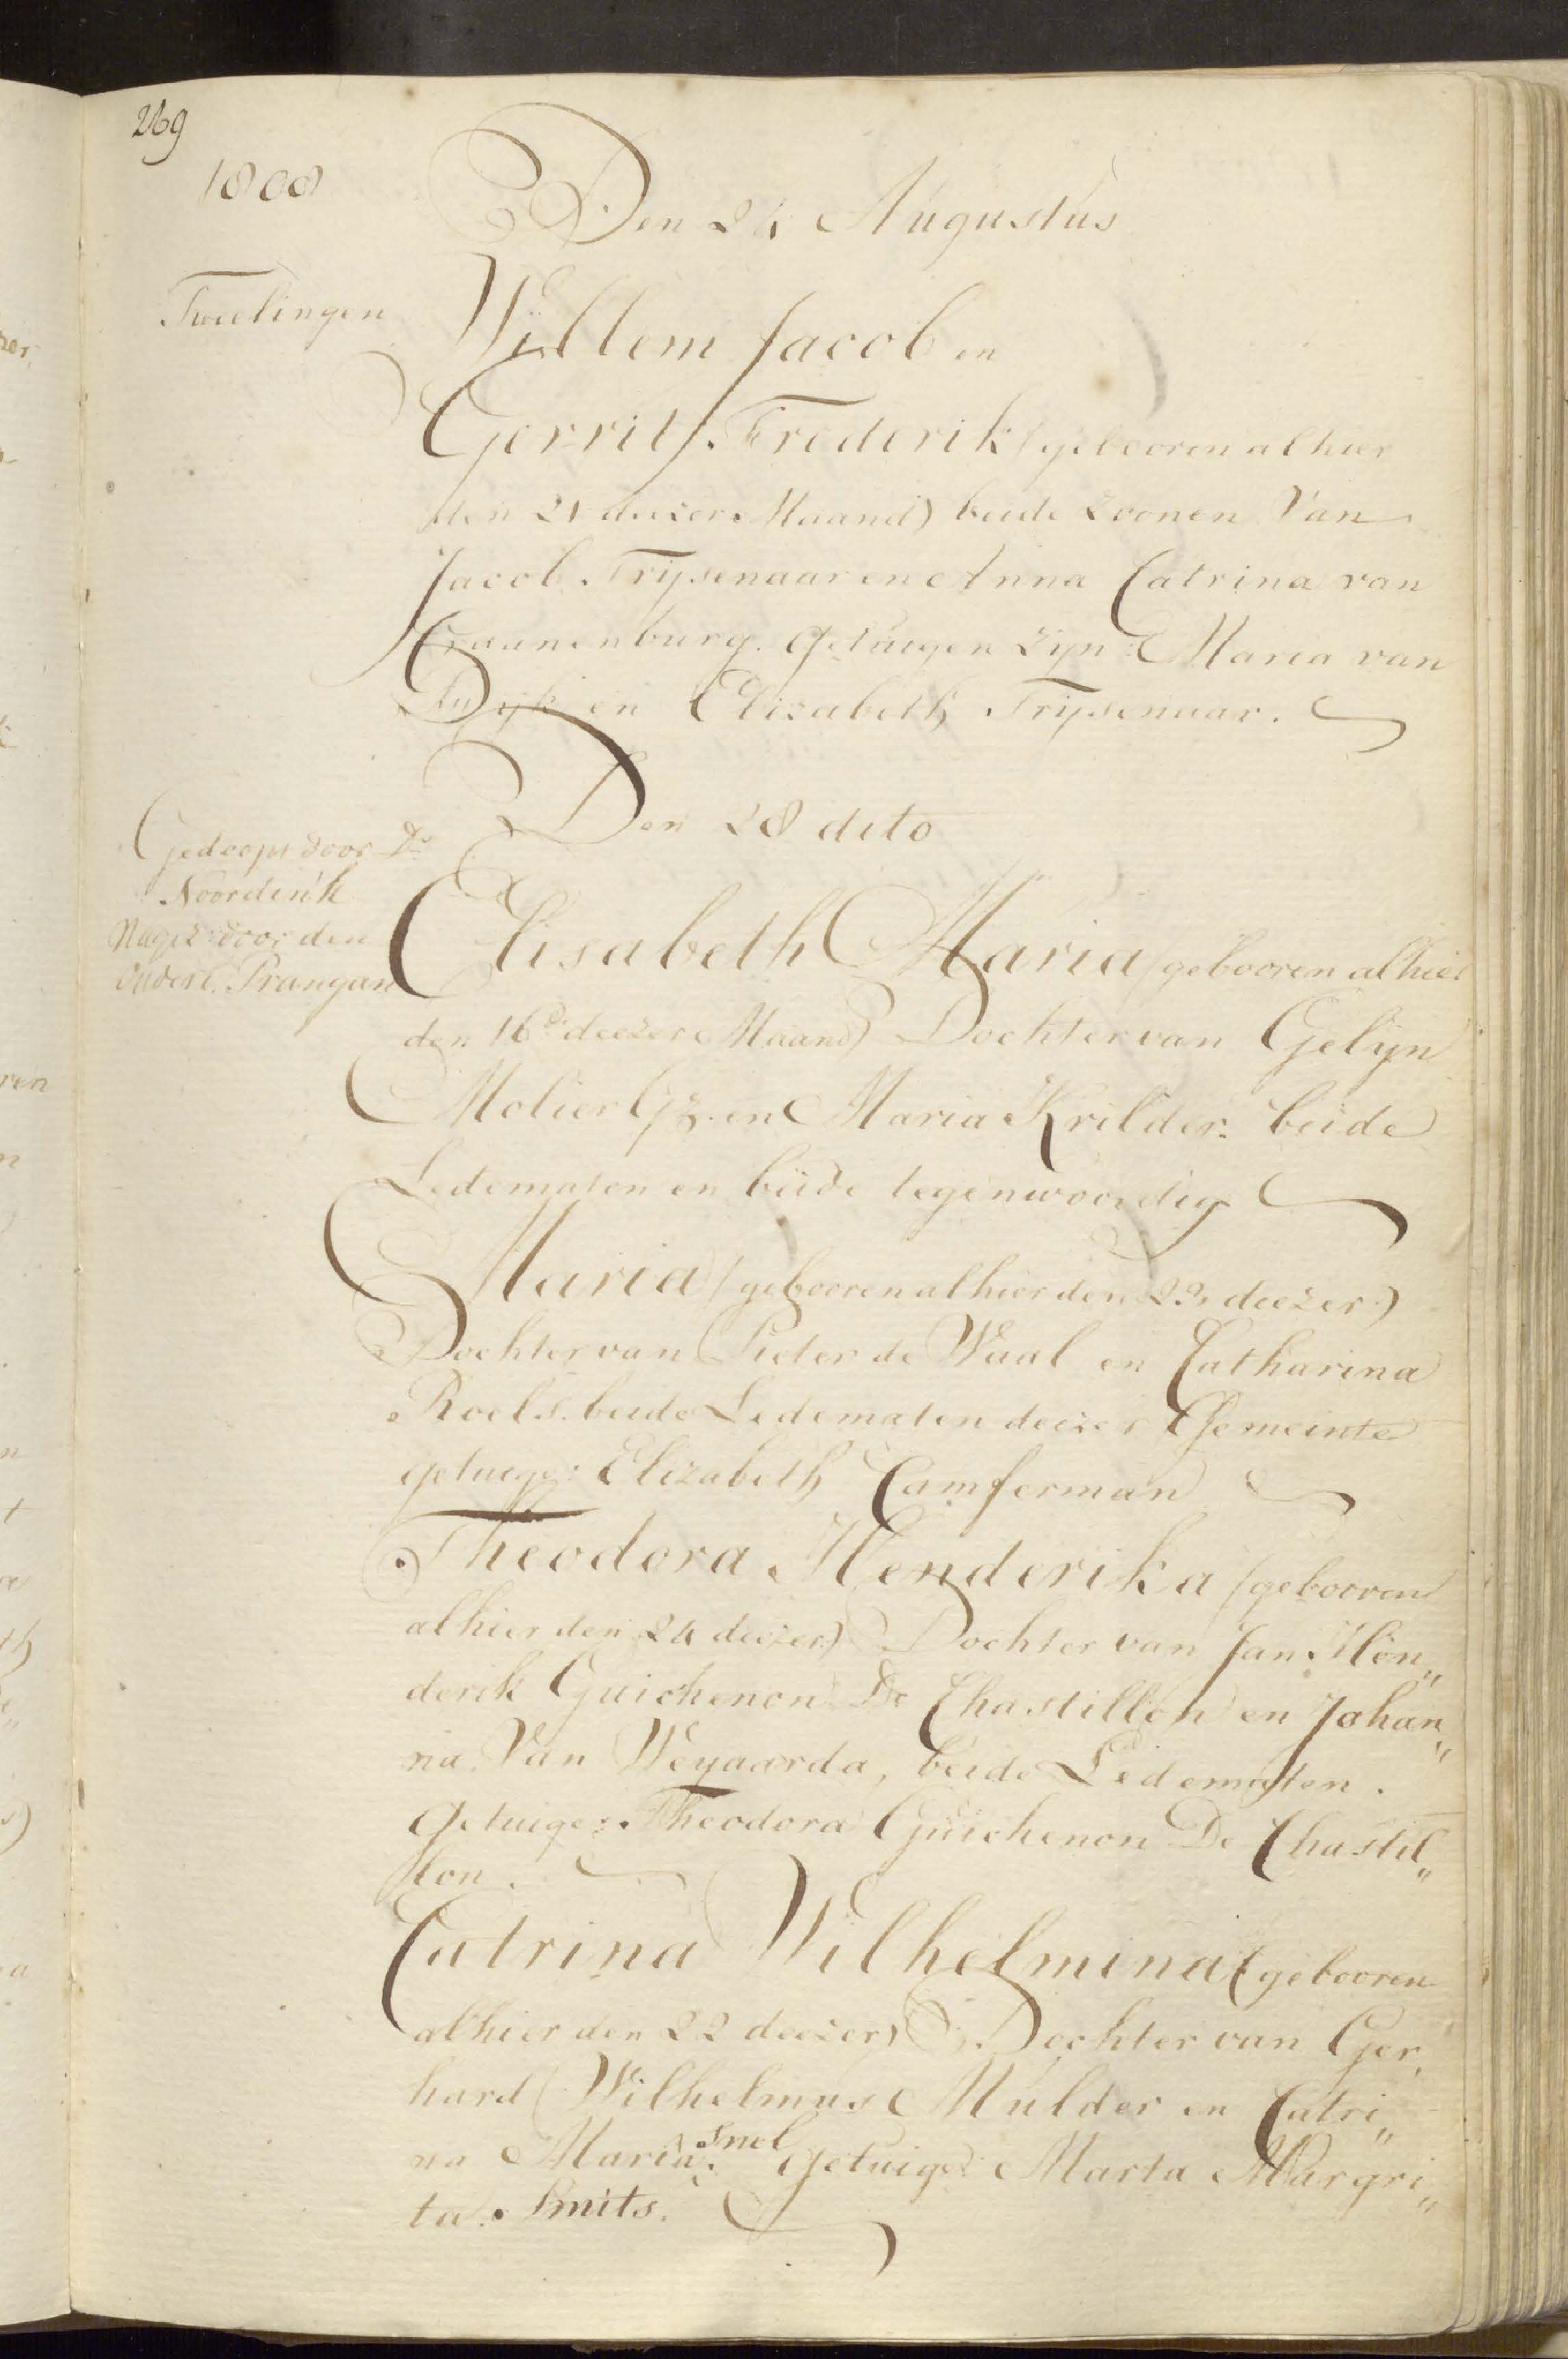 269
1808
Den 24 Augustus
Tweelingen
Willem Jacob en
Gerrit Frederik (gebooren alhier
den 21 deezer Maand) beide zoonen Van
Jacob Trysenaar en Anna Catrina van
Craanenburg. Getuigen zyn: Maria van
Dyk en Elizabeth Trysenaar.
Den 28 dito
Gedoopt door Ds
Noordink
Nagez: door den
Ouderl. Prangan
Elisabeth Maria (gebooren alhier
den 16de deezer Maand) Dochter van Gelyn
Molier Gz. en Maria Krilder. beide
Ledematen en beide tegenwoordig
Maria (gebooren alhier den 23 deezer)
Dochter van Pieter de Waal en Catharina
Roels. beide Ledematen deezer Gemeinte
getuige: Elizabeth Camferman
Theodora Henderika (gebooren
alhier den 24 deezer) Dochter van Jan Hen„
derik Guichenon De Chastillon en Johan„
na Van Weyaarda, beide Ledematen.
Getuige: Theodora Guichenon De Chastil„
lon.
Catrina Wilhelmina (gebooren
alhier den 22 deezer) Dochter van Ger„
hard Wilhelmus Mulder en Catri„
na Maria Snel. getuige: Marta Margri„
ta Smits.